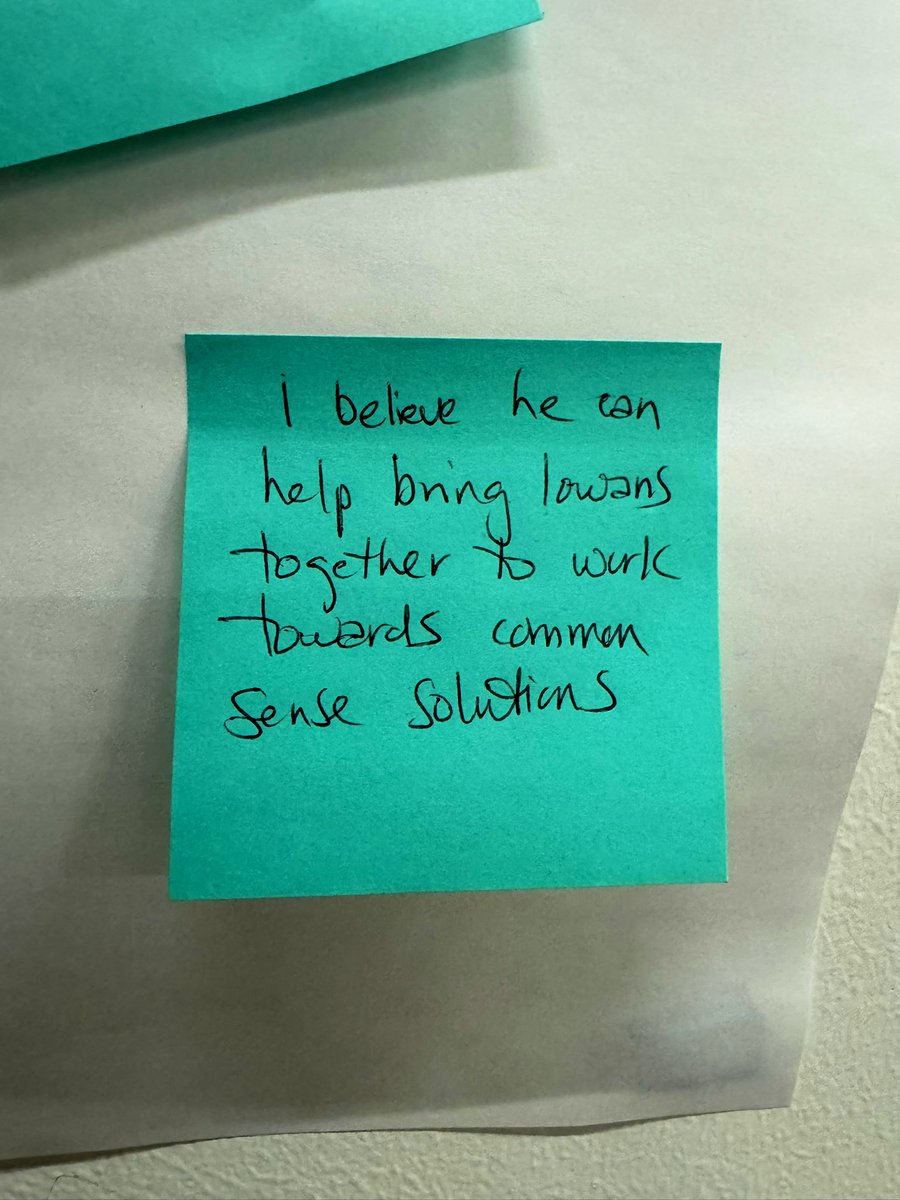 I believe he can
help bring Iowans
together to work
towards common
sense solutions